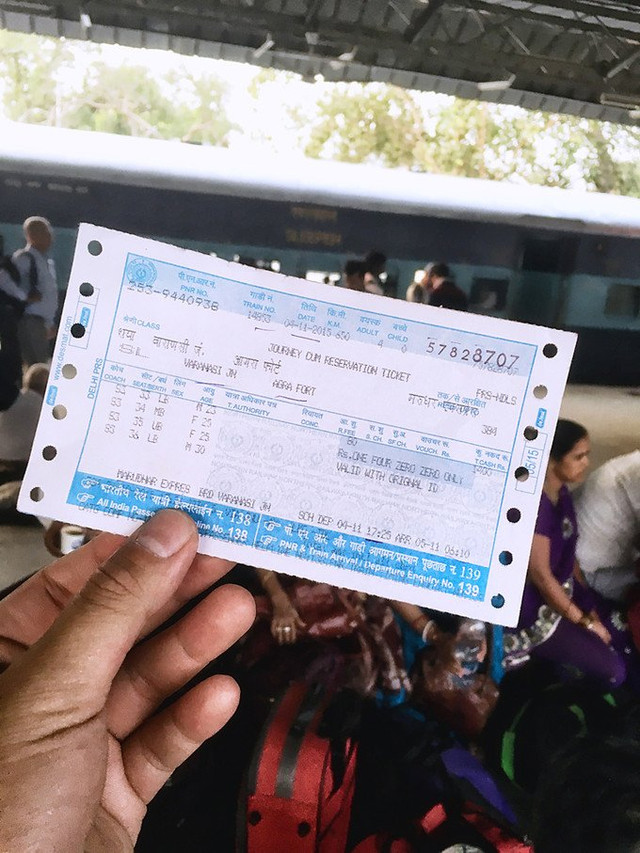 SLEEPER
पी.एन.आर.नं. गाडी नं. तिथि कि.मी. वयस्क बच्चे
PNR NO. TRAIN NO. DATE K.M. ADULT CHILD
253-9440936 14853 04-11-2015 4 0 57828707
श्रेणी CLASS JOURNEY CUM RESERVATION TICKET PRS-NDLS
SL वाराणसी जं. आगरा फोर्ट
VARANASI JN AGRA FORT 384
कोच सीट / बर्थ लिंग आयु यात्रा अधिकार पत्र रियायत
COACH SEAT/BERTH SEX AGE T.AUTHORITY CONC. R.FEE S.CH. SF.CH. VOUCH. Rs. T.CASH Rs.
S3 LB M 25 80 1400
S3 34 MB F 25 Rs.ONE FOUR ZERO ZERO ONLY
S3 33 UB F 25 VALID WITH ORIGNAL ID
S3 LB M 30
MARUDHAR EXPRES BRD VARANASI JN SCH DEP 04-11 17:25 ARR 05-11 06:10
भारतीय रेल यात्री हेल्पलाईन न. 138 पी. एन. आर. और गाडी आगमन/प्रस्थान पूछताछ न. 139
All India Passe line No. 138 PNR & Train Arrival / Departure Enquiry No. 139
www.desmat.com
DELHI PRS